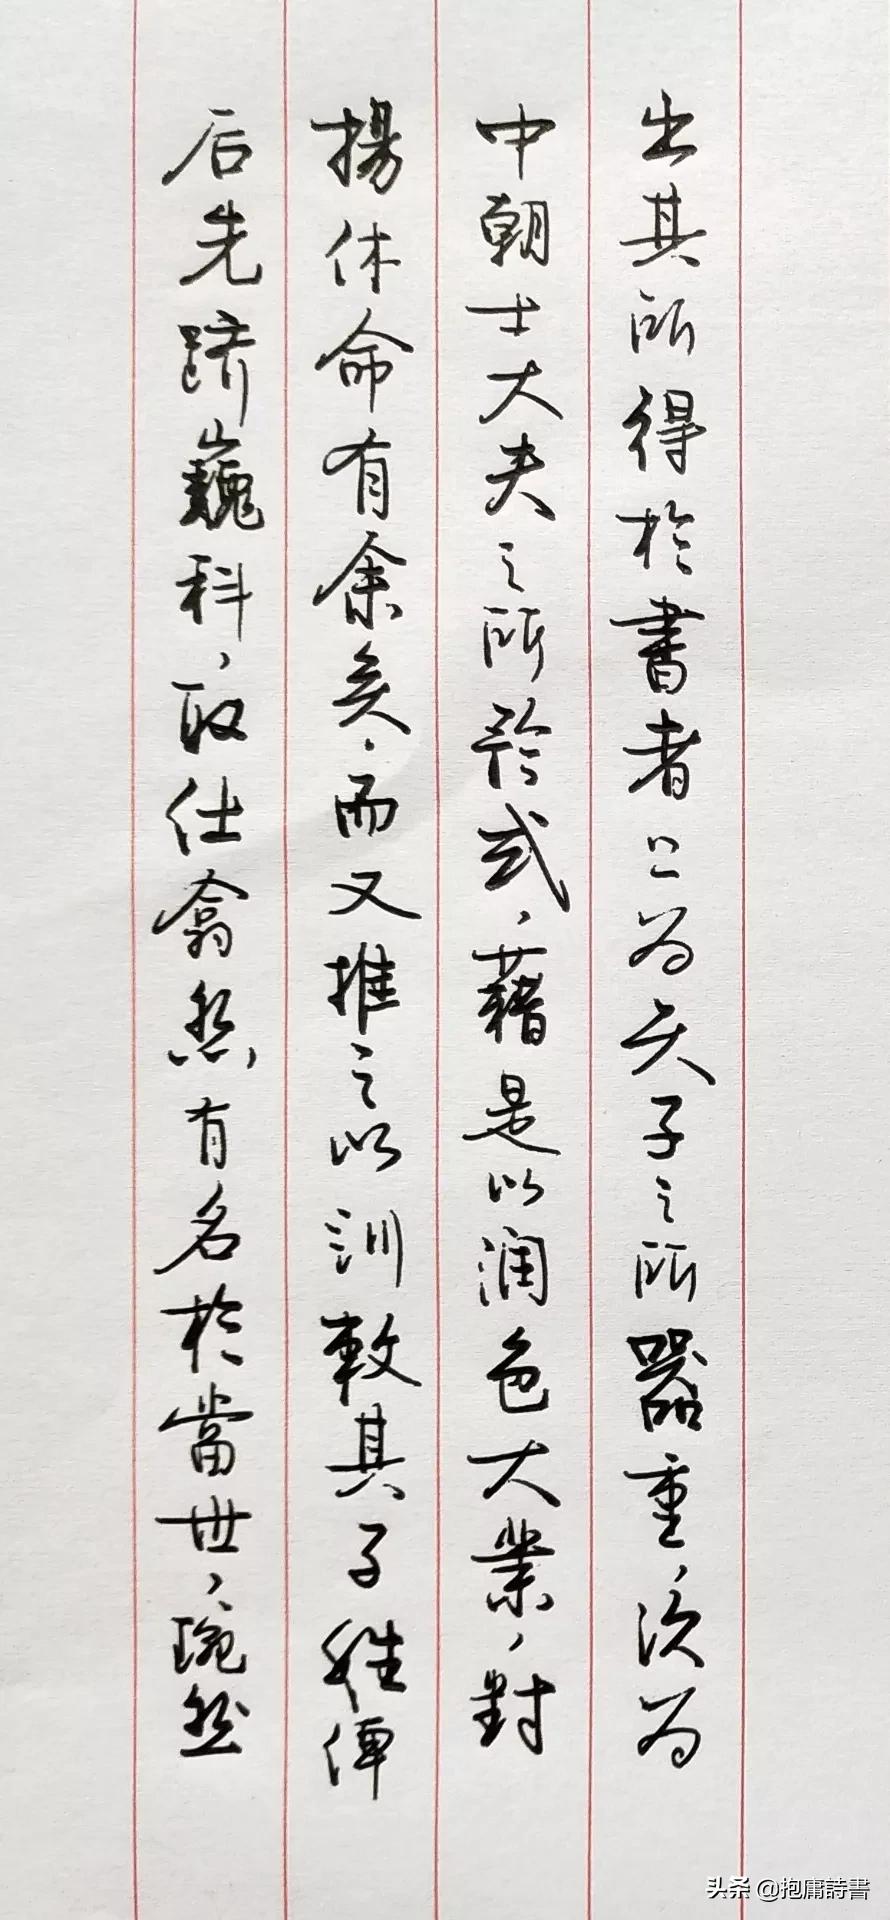 出其所得於書者上为天子之所器重，次为
中朝士大夫之所矜式，藉是以润色大業，對
揚休命有余矣，而又推之以訓敕其子姪俾
后先跻巍科，取仕翕然有名於當世，琬然
头条 @抱庸詩書